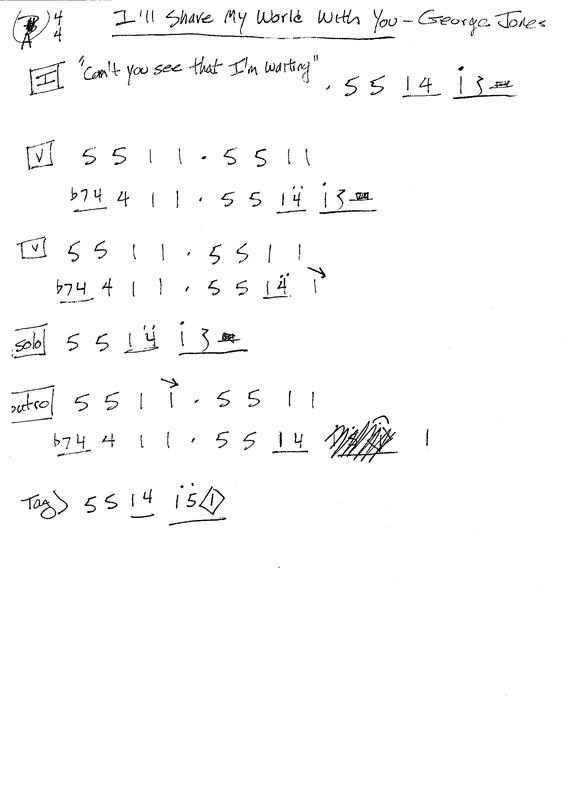 A 4/4 I'll Share My World With You - George Jones
I "Can't you see that I'm waiting" . 5 5 1 4 1 3
V 5 5 1 1 . 5 5 1 1
b7 4 4 1 1 . 5 5 1 4 1 3
V 5 5 1 1 . 5 5 1 1
b7 4 4 1 1 . 5 5 1 4 1
solo 5 5 1 4 1 3
outro 5 5 1 1 . 5 5 1 1
b7 4 4 1 1 . 5 5 1 4 1
Tag) 5 5 1 4 1 5 1